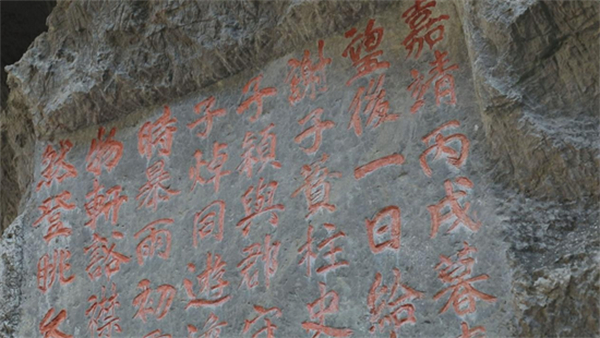 嘉靖丙戌暮
望後一日給
謝子蕡柱史
子穎與郡守
子焯同遊
時暴雨初
物軒豁襟
然登眺久